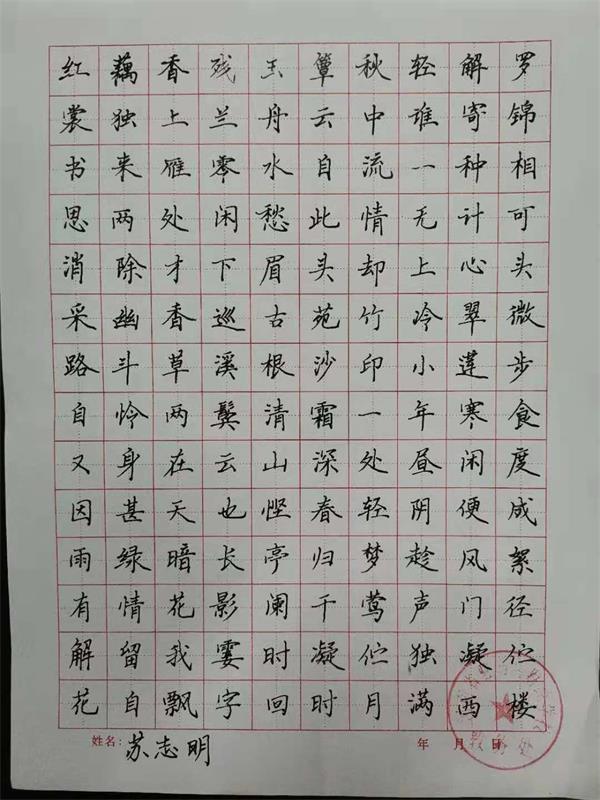 红藕香残玉簟秋轻解罗
裳独上兰舟云中谁寄锦
书来雁零水自流一种相
思两处闲愁此情无计可
消除才下眉头却上心头
采幽香巡古苑竹冷翠微
路斗草溪根沙印小莲步
自怜两鬓清霜一年寒食
又身在云山深处昼闲度
因甚天也悭春轻阴便成
雨绿暗长亭归梦趁风絮
有情花影阑干莺声门径
解留我霎时凝伫独凝伫
花自飘字回时月满西楼
姓名：苏志明 年 月 日